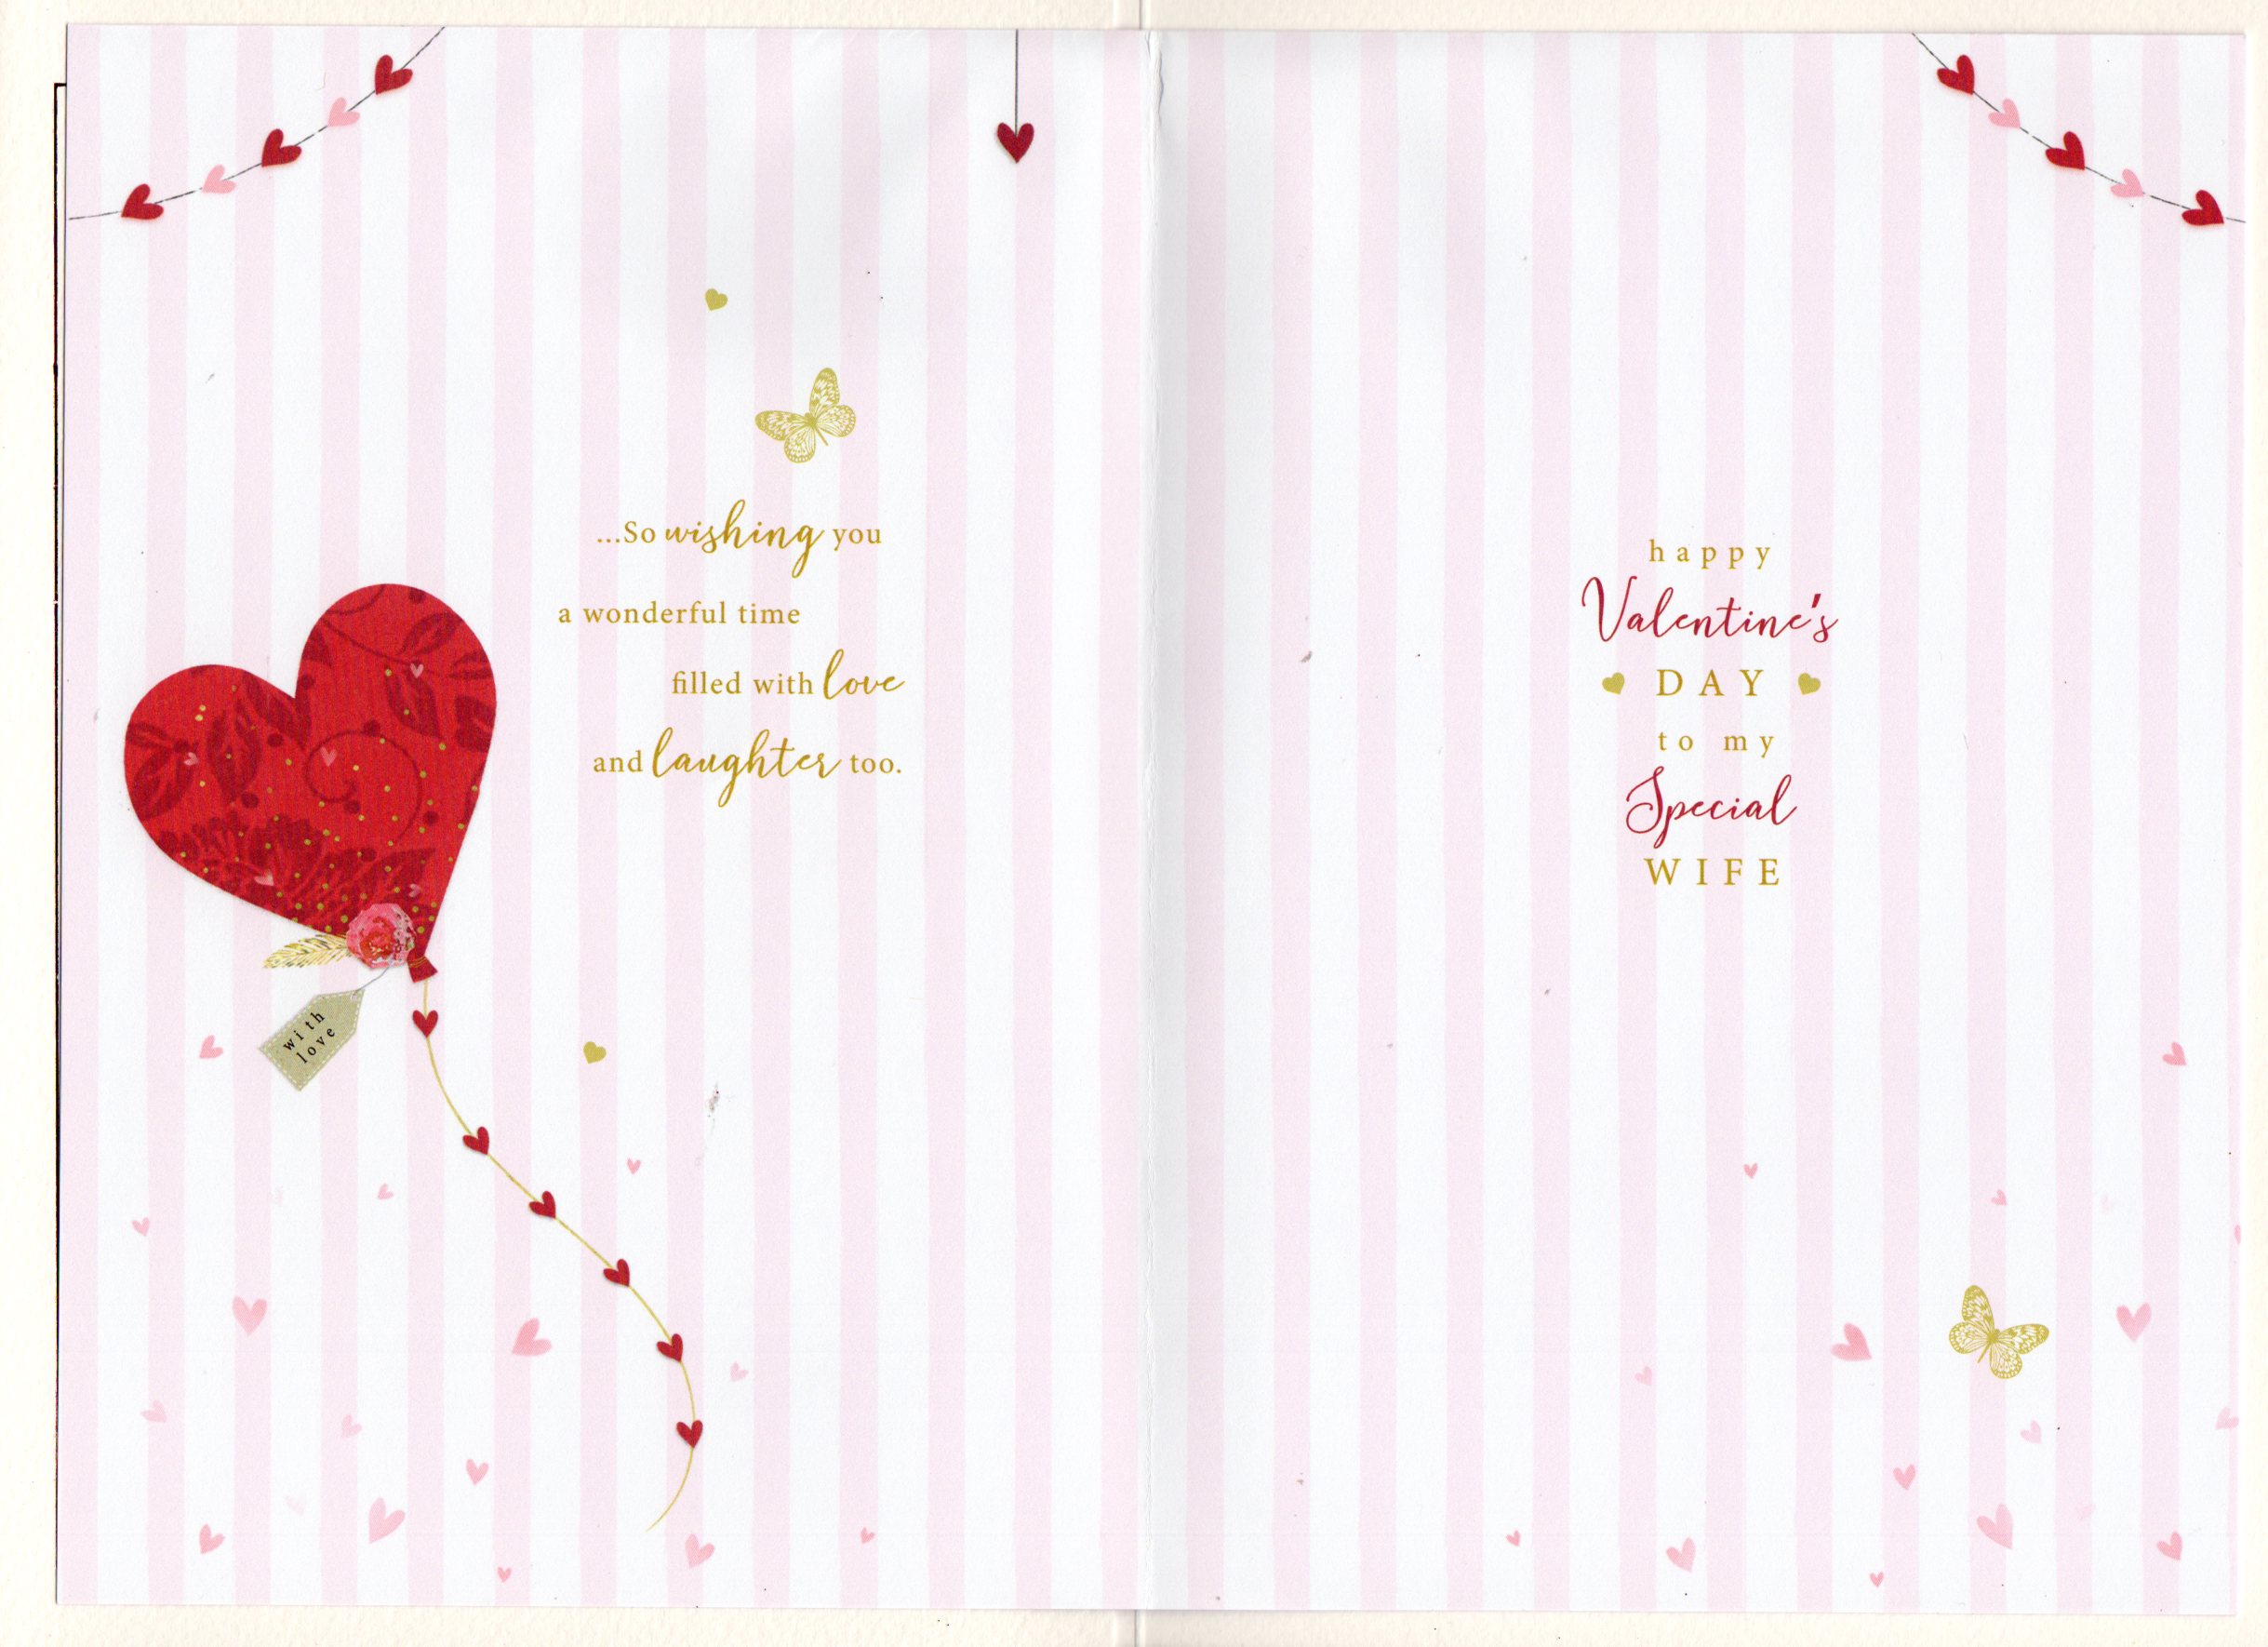 ...So wishing you
a wonderful time
filled with love
and laughter too.
with
love
happy
Valentine's
DAY
to my
Special
WIFE